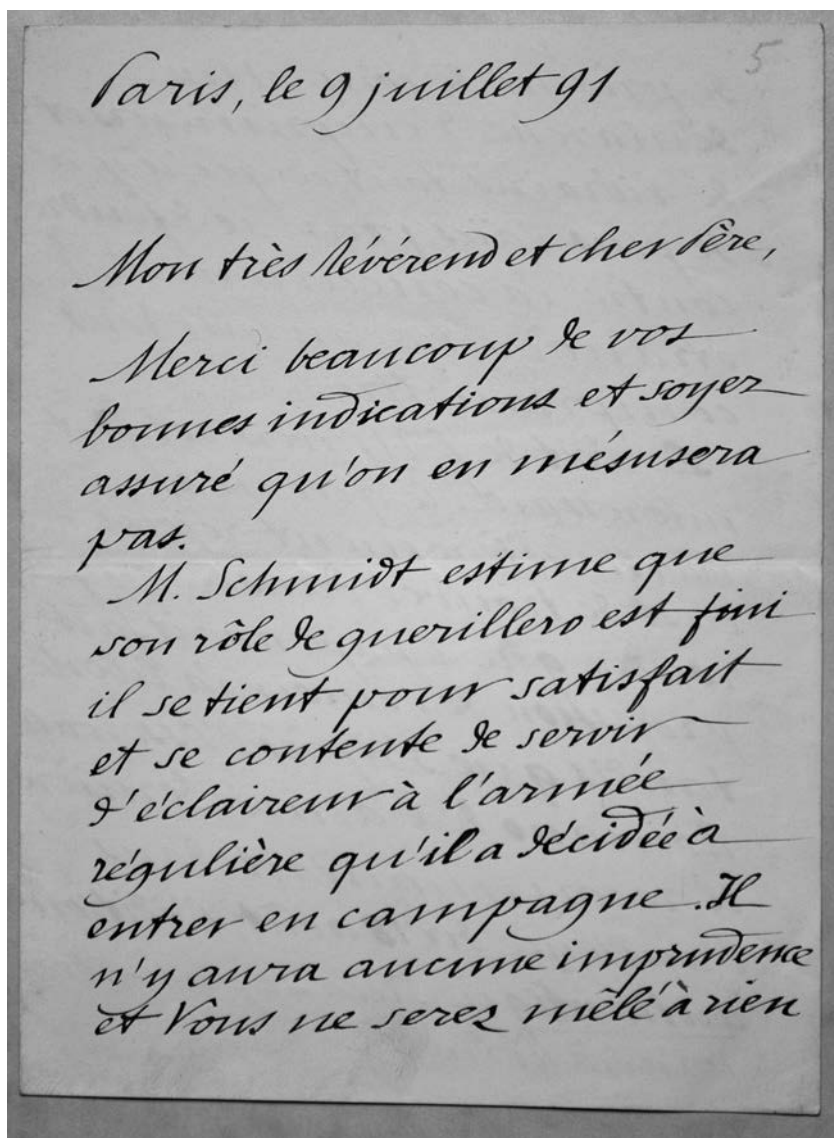 5
Paris, le 9 juillet 91
Mon très Révérend et cher Père,
Merci beaucoup de vos
bonnes indications et soyez
assuré qu'on en mésusera
pas.
M. Schmidt estime que
son rôle de guerillero est fini
il se tient pour satisfait
et se contente de servir
d'éclaireur à l'armée
régulière qu'il a décidée à
entrer en campagne. Il
n'y aura aucune imprudence
et Vous ne serez mêlé à rien